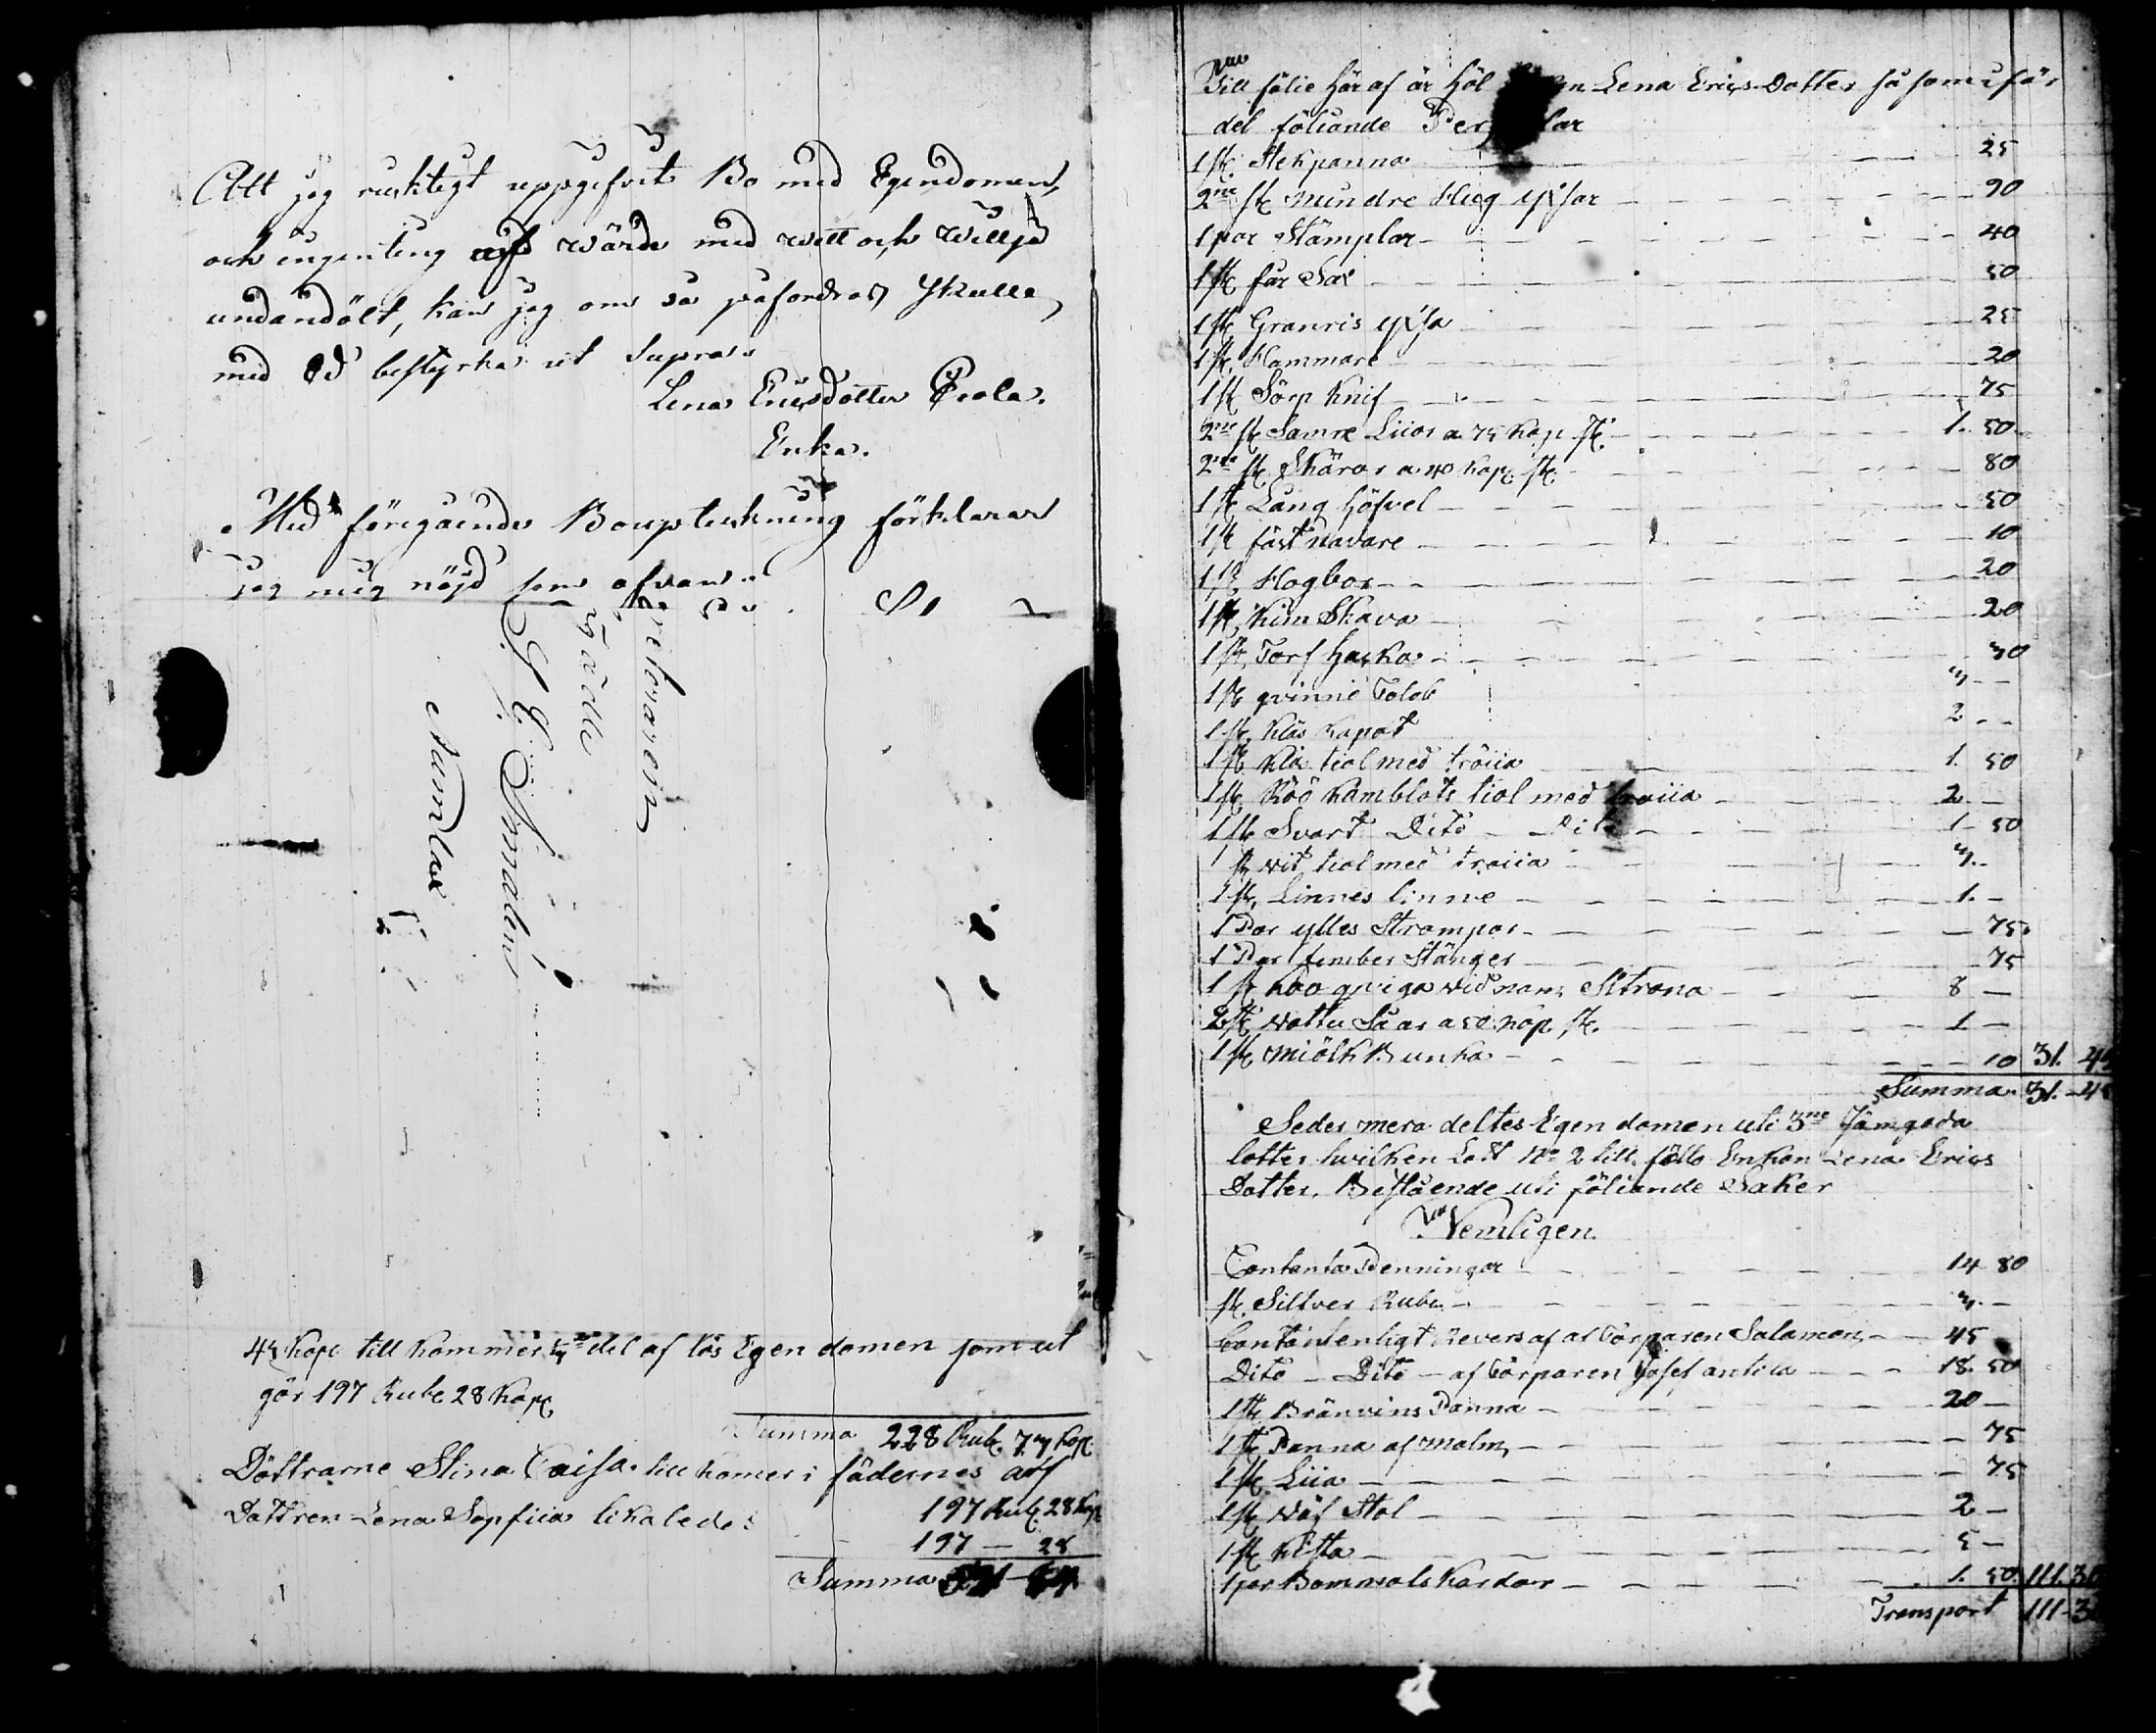 Att jag ricktigt uppgifvit Bo med Egendomen,
och ingenting af wärde med wett och Willja
undandölt, kan jag om så påfordras skulle,
med Ed bestyrka ut Supra.
Lena Ericsdotter
Enka.
Med föregående Bouptekning förklarar
jag mig nöjd som ofvan.
4 Kope till kommer del af lös Egendomen som ut
gör 197 Rube 28 Kope
Summa 228 Rub. Kop.
Döttrarne Stina Caisa till komer i fädernes arf
197 Rub. 28 Kop
Dottren Lena Sopfiia likaledes
197 — 28
Summa
Till fölie här af är Lena Erics Dotter så som
del föliande
1 st. Stekpanna 25
2ne st mindre Hug yxsar 90
1 par Stämplar 40
1 st får Sax 50
1 st Granris yxsa 25
1 st Hammare 20
1 st Sörp Knif 75
2ne st Samre Liior a 75 Kop st. 1. 50
2ne st Skäror a 40 Kop. st 80
1 st Lång höfvel 50
1 st fäst navare 10
1 st Hogbor 20
1 st Kim Skava 20
1 st Torf hacka 30
1 st qvinne 3 -
1 st Kläs Kapot 2 - -
1 st Klä tiol med tröiia 1. 50
1 st Röö Kamblots tiol med tröiia 2 -
1 st Svart Ditö - Ditö 1 - 50
1 st vit tiol med tröiia 3. -
1 st Linnes linne 1. -
1 Par ylles Strompor 75.
1 Par Stänger 75
1 st Koo qviga vid nam Sitrona 8 —
2 st vatten Såar a 50 Kop st. 1 —
1 st miölk Bunka 10 31. 45
Summa 31. - 45
Sedes mera deltes Egendomen uti 3ne Jämgoda
lotter hwilken Lott No 2 till föllo Enkan Lena Erics
Dotter. Bestående uti föliande Saker
Nemligen.
Contanta Penningar 14 80
st. Sillver Rube 3. -
Contant enligt Revers af Torparen Salamon 45
Ditö - Ditö - af Torparen Josef 18. 50
1 st Bränvins Panna 20 —
1 st Panna af malm 75
1 st Liia 75
1 st Väf Stol 2 —
1 st Kista 5 —
1 par Bommols Kardor 1. 50 111. 30
Transport 111 - 30